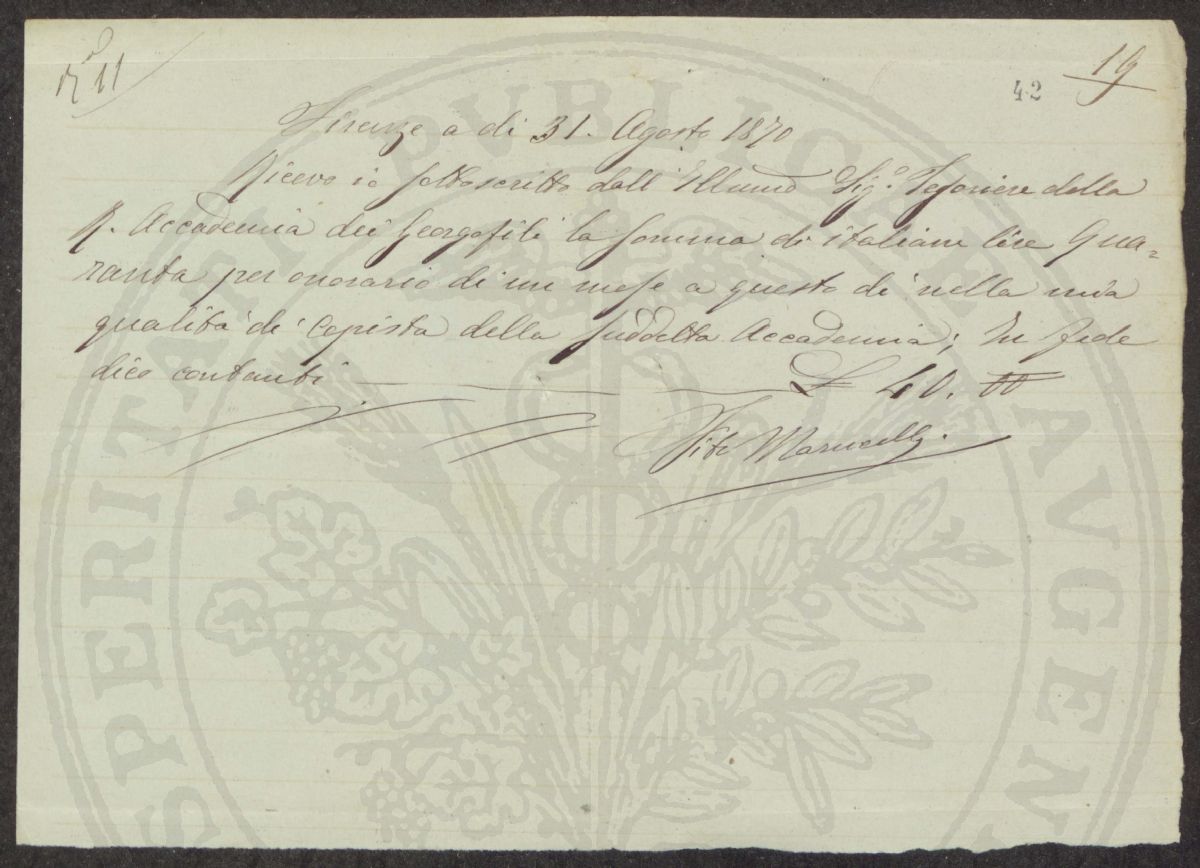 N.º 11
19
42
Firenze a di 31. Agosto 1870
Ricevo io sottoscritto dall' Illumo Sig.e Tesoriere della
R. Accademia dei Georgofili la somma di italiane lire Qua=
ranta per onorario di un mese a questo di nella mia
qualità di Copista della suddetta Accademia; In fede
dico contanti L 40. 00
PROSPERITATI PVBLICAE AVGENDAE